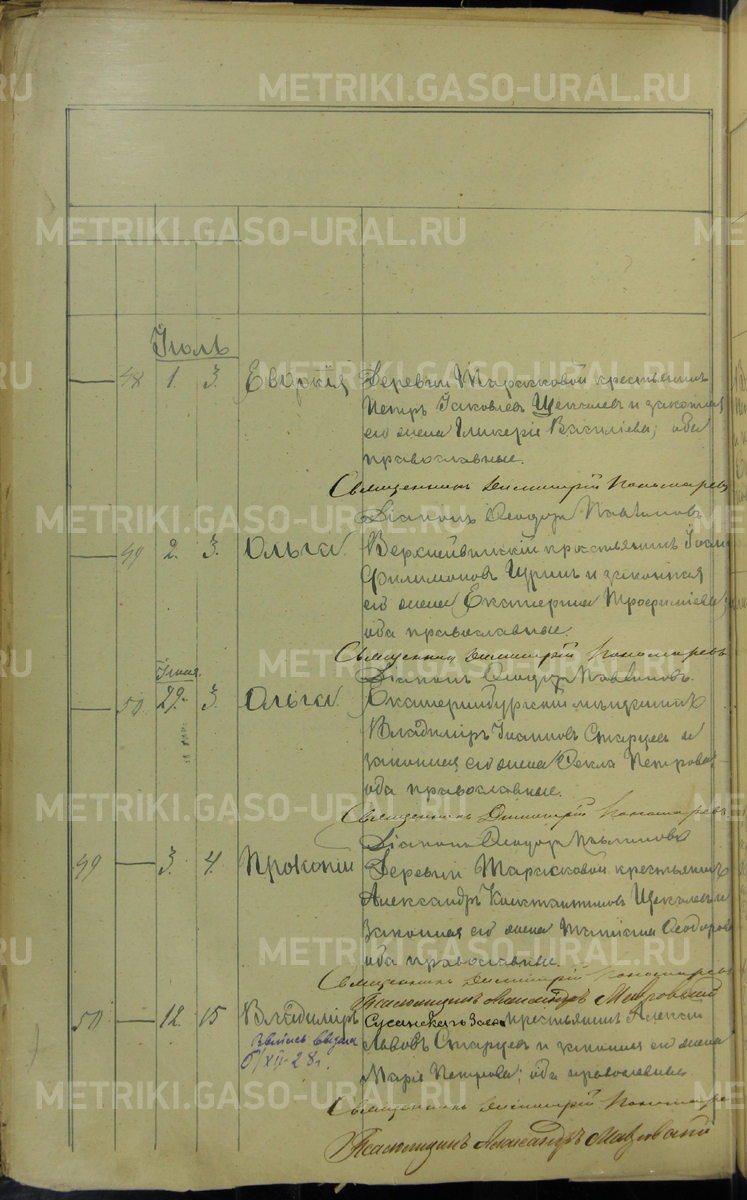 METRIKI.GASO-URAL.RU
Іюль
48 1. 3. Евдокія Деревни Тарасковой крестьянинъ
Петръ Іаковлевъ Щекалевъ и законная
его жена Гликерія Василіева; оба
православные.
Священникъ Димитрій Пономаревъ
Діаконъ Ѳеодоръ
49 2. 3. Ольга Верхнейвинскій крестьянинъ
Филимоновъ и законная
его жена Екатерина Трофиміева;
оба православные.
Священникъ Димитрій Пономаревъ
Діаконъ Ѳеодоръ
Іюня.
50. 29. 3. Ольга Екатеринбургскій мѣщанинъ
Владиміръ Іоанновъ Старцевъ и
законная его жена Ѳекла Петрова;
оба православные.
Священникъ Димитрій Пономаревъ
Діаконъ Ѳеодоръ
49 3. 4. Прокопій Деревни Тарасковой крестьянинъ
Александръ Константиновъ Щекалевъ и
законная его жена Татіана Ѳеодорова
оба православные.
Священникъ Димитрій Пономаревъ
Псаломщикъ Александръ
50 12. 15 Владиміръ крестьянинъ Алексій
Львовъ Старцевъ и законная его жена
Марія Петрова; оба православные.
6/XII-28г.
Священникъ Димитрій Пономаревъ
Псаломщикъ Александръ